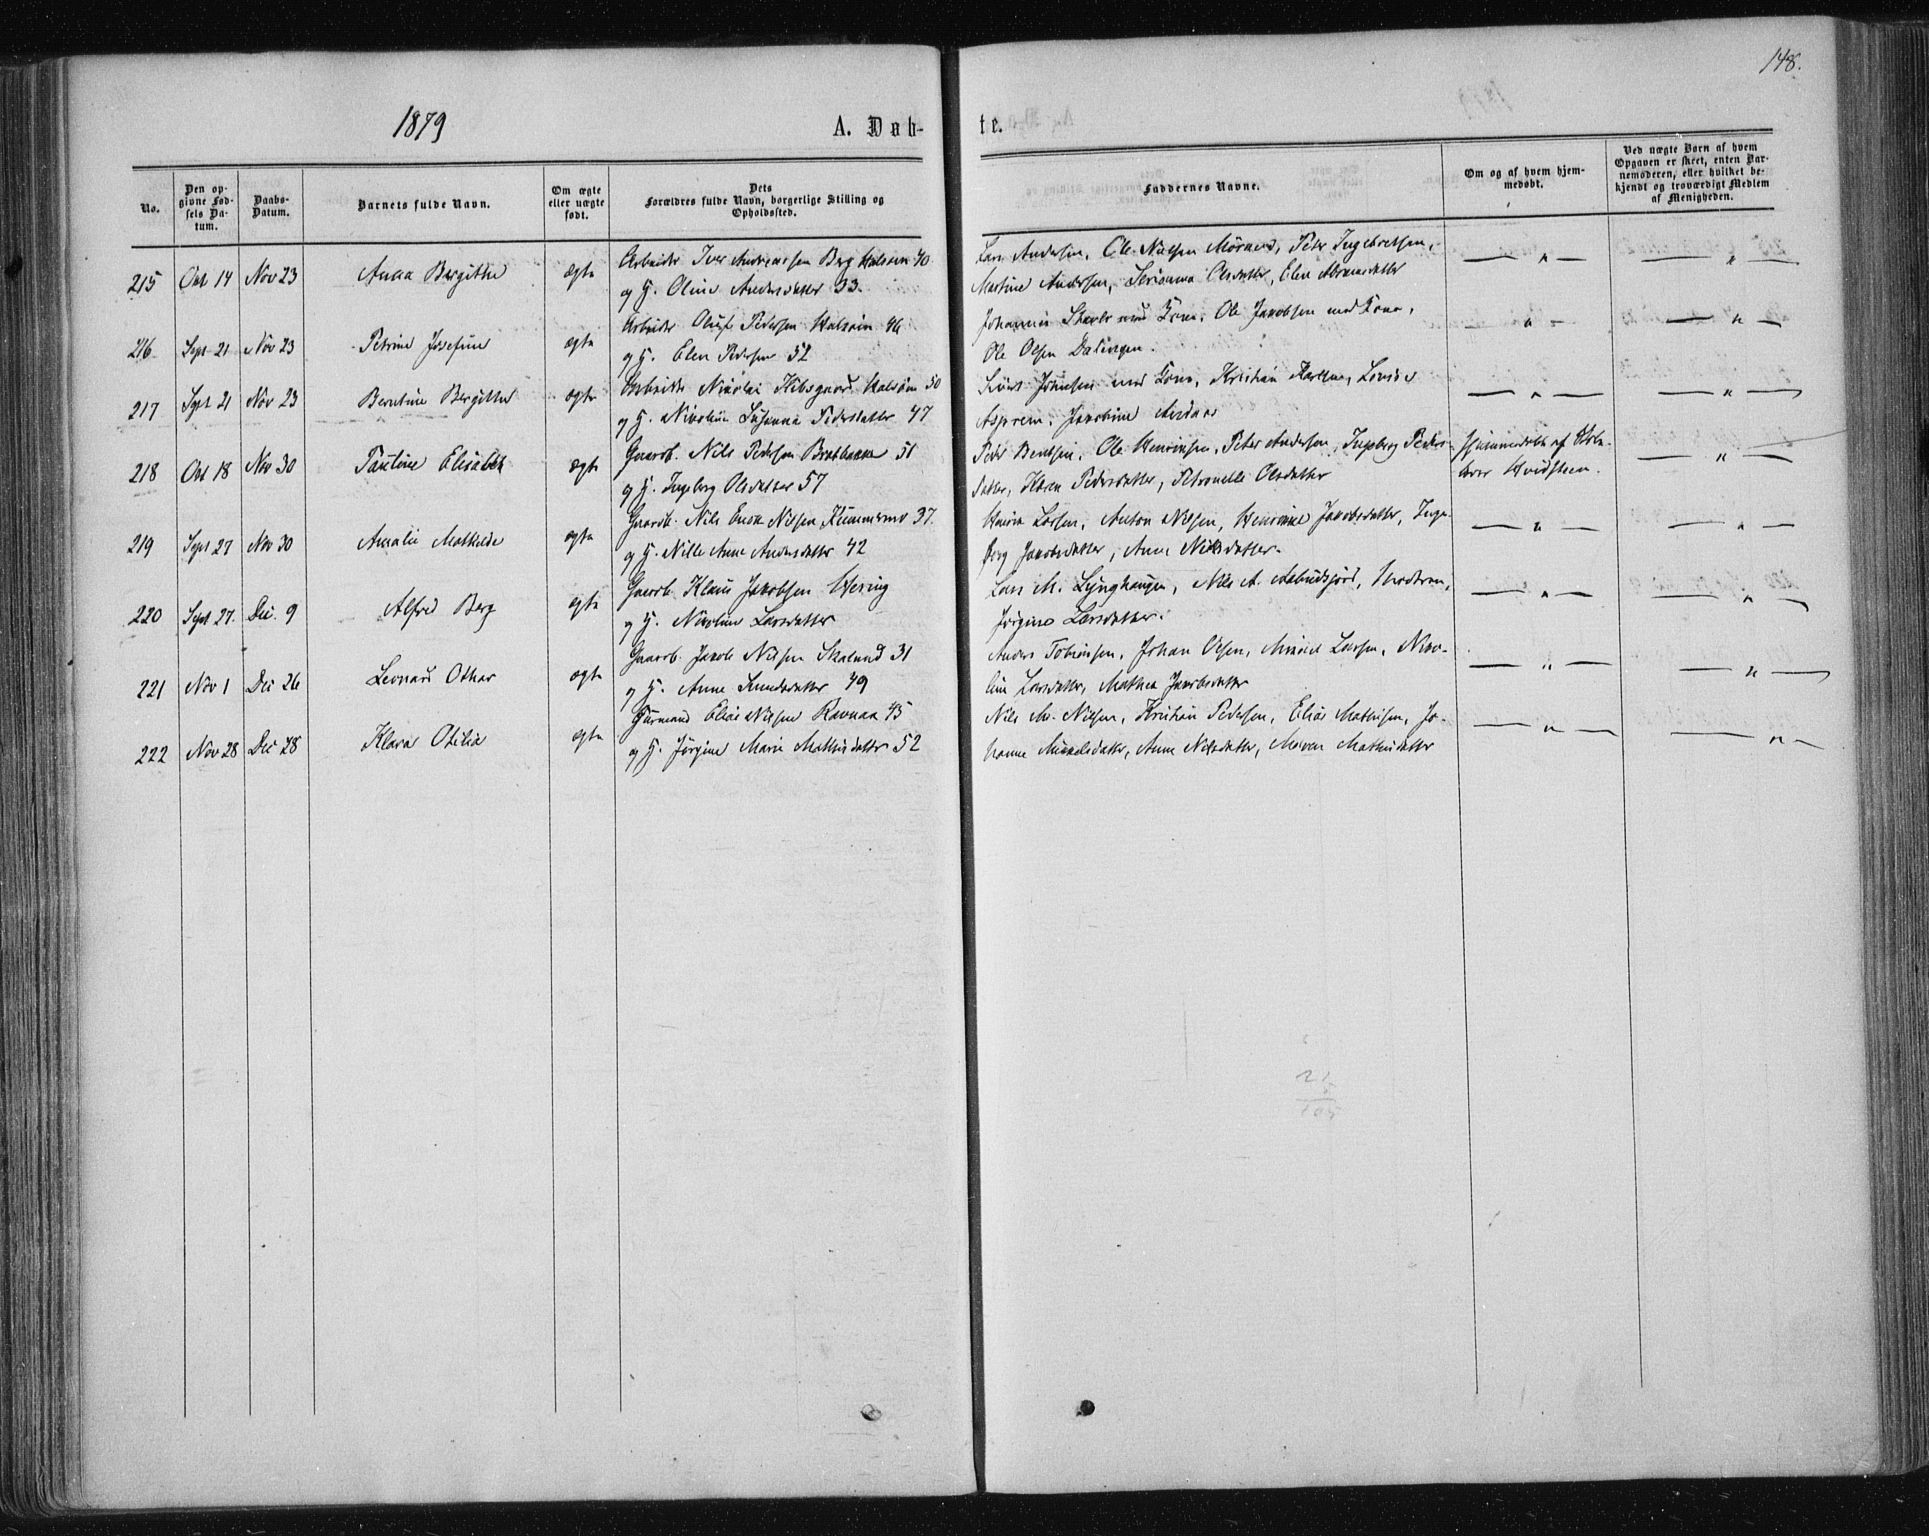 148.
1879
A. Døb-
te.
No.
Den op-
givne Fød-
sels Da-
tum.
Daabs-
Datum.
Barnets fulde Navn.
Om ægte
eller uægte
født.
Dets
Forældres fulde Navn, borgerlige Stilling og
Opholdssted.
Faddernes Navne.
Om og af hvem hjem-
medøbt.
Ved uægte Børn af hvem
Opgaven er skeet, enten Bar-
nemoderen, eller hvilket be-
kjendt og troværdigt Medlem
af Menigheden.
215 Oct 14 Nov 23 Anna Bergithe ægte Arbeider Iver Andreassen Berg Halsøen 40
og H. Oline Andersdatter 33.
Lars Andersen, Ole Nielsen, Peter Ingebretsen,
Martine Andersen, Olsdatter, Elen Abramsdatter
— " — — " —
216 Sept 21 Nov 23 Petrine Josefine ægte Arbeider Oluf Pedersen Halsøen 46
og H. Elen Pedersen 52
Johannes med Kone, Ole Jakobsen med Kone,
Ole Olsen Dalingen.
— " — — " —
217 Sept 21 Nov 23 Berntine Bergitte ægte Arbeider Nikolai Halsøen 50
og H. Nikoline Susanna Pedersdatter 47
Johnsen med Kone, Kristian Karlsen, Lovise
Jakobine
— " — — " —
218 Oct 18 Nov 30 Pauline Elisabeth ægte Gaardb. Nils Pedersen 51
og H. Ingeborg Olsdatter 57
Peder Berntsen, Ole Henriksen, Peter Andersen, Ingeborg Peders-
datter, Karen Pedersdatter, Petronelle Olsdatter
Hjemmedøbt af
Hvidsteen.
— " —
219 Sept 27 Nov 30 Amalie Mathilde ægte Gaardb. Nils Enok Nilsen 37.
og H. Nille Anna Andersdatter 42
Larsen, Anton Nilsen, Jakobsdatter, Inge-
borg Jakobsdatter, Anne Nilsdatter.
— " — — " —
220 Sept 27. Dec. 9 Alfred Berg ægte Gaardb. Klaus Jakobsen Hering
og H. Nikoline Larsdatter
Lars M. Lynghaugen, Nils A., Moderen,
Jørgine Larsdatter.
— " — — " —
221 Nov 1 Dec 26 Leonard Othar ægte Gaardb. Jakob Nilsen 31
og H. Anne 49
Anders Tobiassen, Johan Olsen, Larsen, Niko-
line Larsdatter, Mathea Jakobsdatter
— " — — " —
222 Nov 28 Dec 28 Klara Otilia ægte Elias Nilsen Ravnaa 45
og H. Jørgine Marie Mathisdatter 52
Nils M. Nilsen, Kristian Pedersen, Elias Mathisen, Jo-
hanne Mikkelsdatter, Anne Nilsdatter, Maren Mathisdatter
— " — — " —